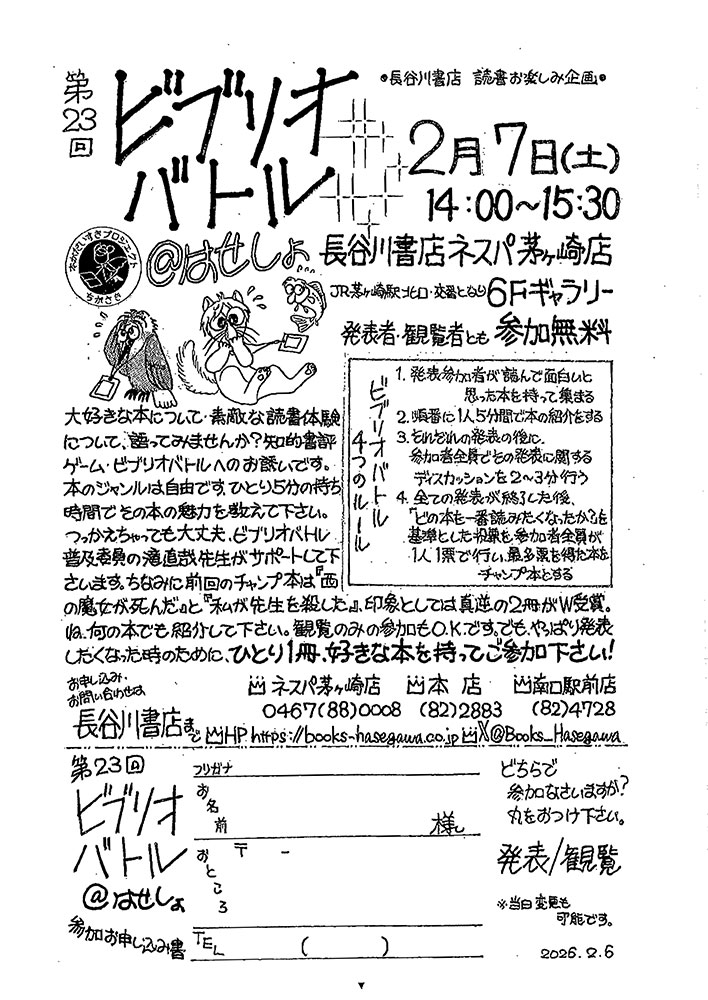 ●長谷川書店 読書お楽しみ企画●
第23回
ビブリオ
バトル
2月7日(土)
14:00〜15:30
本がだいすきプロジェクト
ちがさき
@はせしょ
長谷川書店ネスパ茅ヶ崎店
JR茅ヶ崎駅北口・交番となり 6Fギャラリー
発表者・観覧者とも 参加無料
大好きな本について・素敵な読書体験
について、語ってみませんか?知的書評
ゲーム・ビブリオバトルへのお誘いです。
本のジャンルは自由です。ひとり5分の持ち
時間でその本の魅力を教えて下さい。
つっかえちゃっても大丈夫、ビブリオバトル
普及委員の滝直哉先生がサポートして下
さいます。ちなみに前回のチャンプ本は『西
の魔女が死んだ』と『私が先生を殺した』、印象としては真逆の2冊がW受賞。
ね、何の本でも紹介して下さい。観覧のみの参加もO.K.です。でも、やっぱり発表
したくなった時のために、ひとり1冊、好きな本を持ってご参加下さい!
ビブリオバトル
4つのルール
1. 発表参加者が読んで面白いと
思った本を持って集まる
2. 順番に1人5分間で本の紹介をする
3. それぞれの発表の後に、
参加者全員でその発表に関する
ディスカッションを2〜3分行う
4. 全ての発表が終了した後、
「どの本を一番読みたくなったか?」を
基準とした投票を参加者全員が
1人1票で行い、最多票を得た本を
チャンプ本とする
お申し込み・
お問い合わせは
長谷川書店まで
ネスパ茅ヶ崎店 本店 南口駅前店
0467(88)0008 (82)2883 (82)4728
HP https://books-hasegawa.co.jp X@Books_Hasegawa
第23回
ビブリオ
バトル
@はせしょ
参加お申し込み書
フリガナ
お名前
様
おところ
〒 -
TEL ( )
どちらで
参加なさいますか?
丸をおつけ下さい。
発表/観覧
※当日変更も
可能です。
2026.2.6